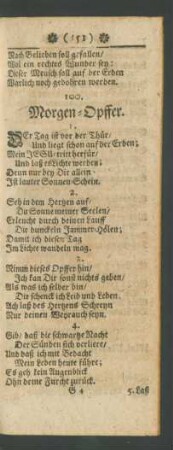 (152)
Nach Belieben soll gefallen/
Wol ein rechtes Wunder sey:
Dieser Mensch soll auf der Erden
Warlich noch gebohren werden.
100.
Morgen-Opffer.
1.
DEr Tag ist vor der Thür/
Und liegt schon auf der Erden;
Mein JESU tritt herfür/
Und laß es Lichte werden;
Denn nur bey Dir allein
Ist lauter Sonnen-Schein.
2.
Seh in den Hertzen auf/
Du Sonne meiner Seelen/
Erleucht durch deinen Lauff
Die dunckeln Jammer-Hölen;
Damit ich diesen Tag
Im Lichte wandeln mag.
3.
Nimm dieses Opffer hin/
Ich kan Dir sonst nichts geben/
Als was ich selber bin/
Dir schenck ich Leib und Leben.
Ach laß des Hertzens Schreyn
Nur deinen Weyrauch seyn.
4.
Gib/ daß die schwartze Nacht
Der Sünden sich verliere/
Und daß ich mit Bedacht
Mein Leben heute führe;
Es geh kein Augenblick
Ohn deine Furcht zurück.
G 4
5. Laß